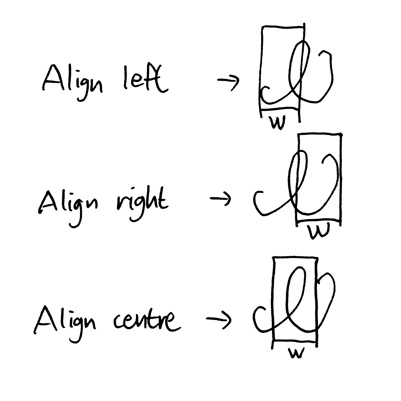 Align left →
W
Align right →
W
Align centre →
W